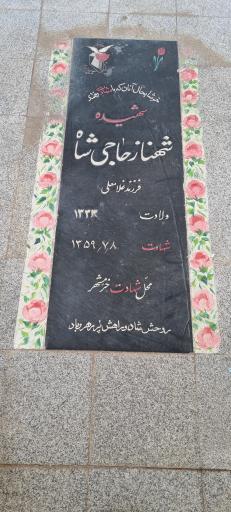 خوشا بحال آنان که با شهادت رفتند
شهیده
شهناز حاجی شاه
فرزند غلامعلی
ولادت ۱۳۳۳
شهادت ۱۳۵۹/۷/۸
محل شهادت خرمشهر
روحش شاد و راهش پر رهرو باد